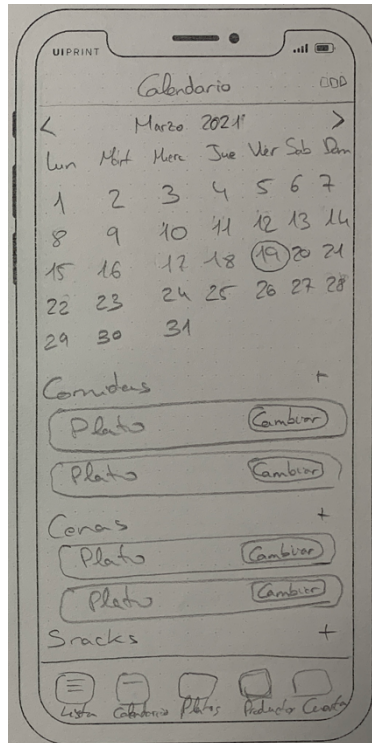 UIPRINT
Calendario
< Marzo 2021 >
Lun Mart Mierc Jue Vier Sab Dom
1 2 3 4 5 6 7
8 9 10 11 12 13 14
15 16 17 18 19 20 21
22 23 24 25 26 27 28
29 30 31
Comidas +
Plato Cambiar
Plato Cambiar
Cenas +
Plato Cambiar
Plato Cambiar
Snacks +
Lista Calendario Platos Productos Cuenta